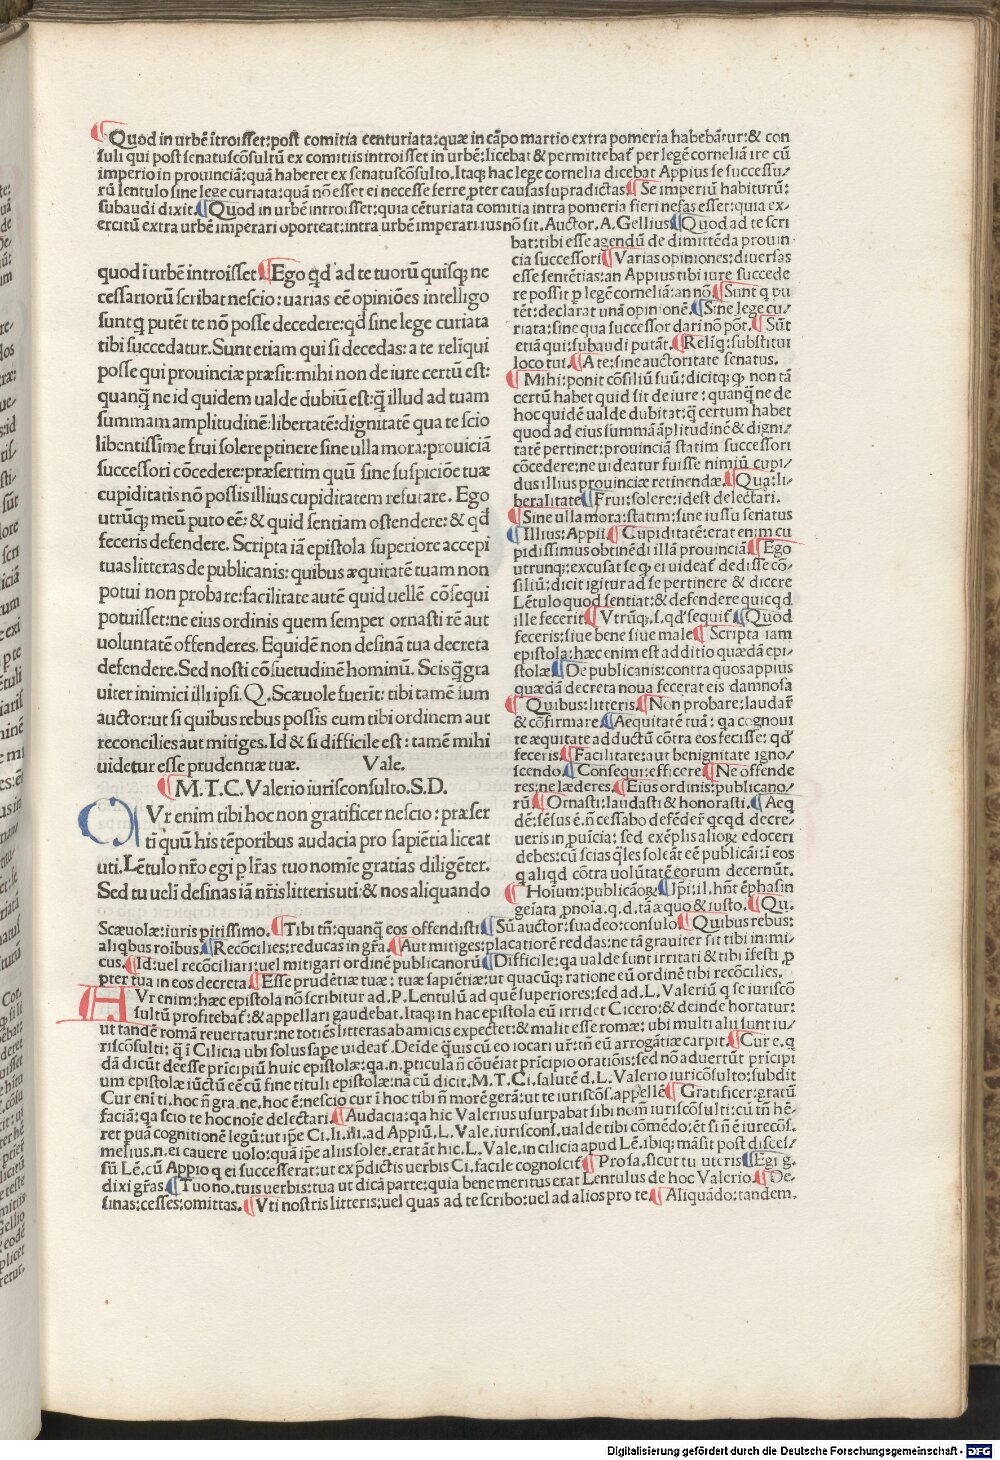 Quod in urbē ītroisset: post comitia centuriata: quæ in cāpo martio extra pomeria habebātur: & con
suli qui post senatuscōsultū ex comitiis introisset in urbē: licebat & permittebať per legē corneliā ire cū
imperio in prouinciā: quā haberet ex senatuscōsulto. Itaq; hac lege cornelia dicebat Appius se successu/
rū lentulo sine lege curiata: quā nō esset ei necesse ferre ꝓpter causas supradictas. Se imperiū habiturū:
subaudi dixit. Quod in urbē introisset: quia cēturiata comitia intra pomeria fieri nefas esset: quia ex/
ercitū extra urbē imperari oporteat: intra urbē imperari ius nō sit. Auctor. A. Gellius. Quod ad te scri
bat: tibi esse agendū de dimittēda prouin
cia successori. Varias opiniones: diuersas
esse sentētias: an Appius tibi iure succede
re possit ꝑ legē corneliā: an nō. Sunt q pu
tēt: declarat unā opinionē. Sine lege cu/
riata: sine qua successor dari nō pōt. Sūt
etiā qui: subaudi putāt. Reliq: substitui
loco tui. A te: sine auctoritate senatus.
Mihi: ponit cōsiliū suū: dicitq; ꝙ non tā
certū habet quid sit de iure: quanq̄ ne de
hoc quidē ualde dubitat: q̄ certum habet
quod ad eius summā āplitudinē & digni/
tatē pertinet: prouinciā statim successori
cōcedere: ne uideatur fuisse nimiū cupi/
dus illius prouinciæ retinendæ. Qua: li/
beralitate. Frui: solere: idest delectari.
Sine ulla mora: statim: sine iussu senatus
Illius: Appii. Cupiditatē: erat enim cu
pidissimus obtinēdi illā prouinciā. Ego
utrunq;: excusat se ꝙ ei uideať dedisse cō/
siliū: dicit igitur ad se pertinere & dicere
Lētulo quod sentiat: & defendere quicqd
ille fecerit. Vtrūq;. s. qd' sequiť. Quod
feceris: siue bene siue male. Scripta iam
epistola: hæc enim est additio quædā epi/
stolæ. De publicanis: contra quos appius
quædā decreta noua fecerat eis damnosa
Quibus: litteris. Non probare: laudař
& cōfirmare. Aequitatē tuā: qa cognoui
te æquitate adductū cōtra eos fecisse: qd'
feceris. Facilitate: aut benignitate igno/
scendo. Consequi: efficere. Ne offende
res: ne læderes. Eius ordinis: publicano/
rū. Ornasti: laudasti & honorasti. Aeq
dē: sēsus ē. n̄ cessabo defēdeř qcqd decre/
ueris in ꝓuīcia: sed exēplis alioꝝ edoceri
debes: cū scias q̄les soleāt eē publicāi: ī eos
q aliqd cōtra uolūtatē eorum decernūt.
Hoīum: publicāoꝝ. Ipī: il. hn̄t ēphasin
geīata ꝓnoīa. q. d. tā æquo & iusto. Qu.
quod ī urbē introisset. Ego qd' ad te tuorū quisq; ne
cessariorū scribat nescio: uarias eē opiniōes intelligo
sunt q putēt te nō posse decedere: qd' sine lege curiata
tibi succedatur. Sunt etiam qui si decedas: a te relīqui
posse qui prouinciæ præsit: mihi non de iure certū est:
quanq̄ ne id quidem ualde dubiū est: q̄ illud ad tuam
summam amplitudinē: libertatē: dignitatē qua te scio
libentissime frui solere ꝑtinere sine ulla mora: prouiciā
successori cōcedere: præsertim quū sine suspiciōe tuæ
cupiditatis nō possis illius cupiditatem refutare. Ego
utrūq; meū puto eē: & quid sentiam ostendere: & qd'
feceris defendere. Scripta iā epistola superiore accepi
tuas litteras de publicanis: quibus æquitatē tuam non
potui non probare: facilitate autē quid uellē cōsequi
potuisset: ne eius ordinis quem semper ornasti rē aut
uoluntatē offenderes. Equidē non desinā tua decreta
defendere. Sed nosti cōsuetudinē hominū. Scis q̄ gra
uiter inimici illi ipsi. Q. Scæuole fuerīt: tibi tamē ium
auctor: ut si quibus rebus possis eum tibi ordinem aut
reconcilies aut mitiges. Id & si difficile est: tamē mihi
uidetur esse prudentiæ tuæ. Vale.
M. T. C. Valerio iurisconsulto. S. D.
CVr enim tibi hoc non gratificer nescio: præser
ti quū his tēporibus audacia pro sapiētia liceat
uti. Lētulo nr̄o egi ꝑ lr̄as tuo nomīe gratias diligēter.
Sed tu uelī desinas iā nr̄is litteris uti: & nos aliquando
Scæuolæ: iuris ꝑitissimo. Tibi tn̄: quanq̄ eos offendisti. Sū auctor: suadeo: consulo. Quibus rebus:
aliqbus roībus. Recōcilies: reducas in gr̄a. Aut mitiges: placatiorē reddas: ne tā grauiter sit tibi inimi/
cus. Id: uel recōciliari: uel mitigari ordinē publicanorū. Difficile: qa ualde sunt irritati & tibi ifesti ꝓ
pter tua in eos decreta. Esse prudētiæ tuæ: tuæ sapiētiæ: ut quacūq; ratione eū ordinē tibi recōcilies.
AVr enim: hæc epistola nō scribitur ad. P. Lentulū ad quē superiores: sed ad. L. Valeriū q se iuriscō
sultū profitebať: & appellari gaudebat. Itaq; in hac epistola eū irridet Cicero: & deinde hortatur:
ut tandē romā reuertatur: ne totiēs litteras ab amicis expectet: & malit esse romæ: ubi multi alii sunt iu/
riscōsulti: q̄ ī Cilicia ubi solus sape uideať. Deīde q̄uis cū eo iocari ur̄: tn̄ eū arrogātiæ carpit. Cur e. q
dā dicūt deesse prīcipiū huic epistolæ: qa. n. ꝑticula n̄ cōueīat prīcipio oratiōis: sed nō aduertūt prīcipi
um epistolæ iūctū eē cū fine tituli epistolæ: nā cū dicit. M. T. Ci. salutē d. L. Valerio iuricōsulto: subdit
Cur enī ti. hoc n̄ gra. ne. hoc ē: nescio cur ī hoc tibi n̄ morē gerā: ut te iuriscōs. appellē. Gratificer: gratū
faciā: qa scio te hoc noīe delectari. Audacia: qa hic Valerius usurpabat sibi nom̄ iuriscōsulti: cū tn̄ hē/
ret puā cognitionē legū: ut ip̄e Ci. li. iii. ad Appiū. L. Vale. iuriscons. ualde tibi cōmēdo: et si n̄ ē iurecōs.
melius. n. ei cauere uolo: quā ip̄e aliis soler. erat āt hic. L. Vale. in cilicia apud Lē. ibiq; māsit post disces/
sū Lē. cū Appio q ei successerat: ut ex ꝓdictis uerbis Ci. facile cognosciť. Pro sa. sicut tu uteris. Egi g.
dixi gr̄as. Tuo no. tuis uerbis: tua ut dicā parte: quia bene meritus erat Lentulus de hoc Valerio. De/
sinas: cesses: omittas. Vti nostris litteris: uel quas ad te scribo: uel ad alios pro te. Aliquādo: tandem.
Digitalisierung gefördert durch die Deutsche Forschungsgemeinschaft - DFG